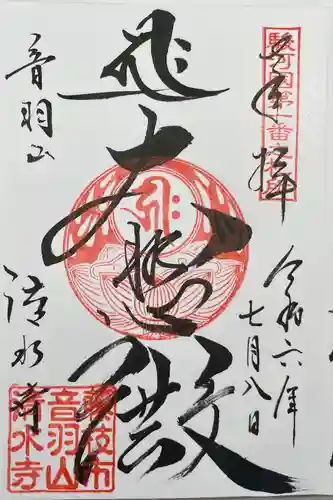 駿河国第十番霊場
奉拝
令和六年
七月八日
大悲殿
音羽山
清水寺
藤枝市
音羽山
清水寺